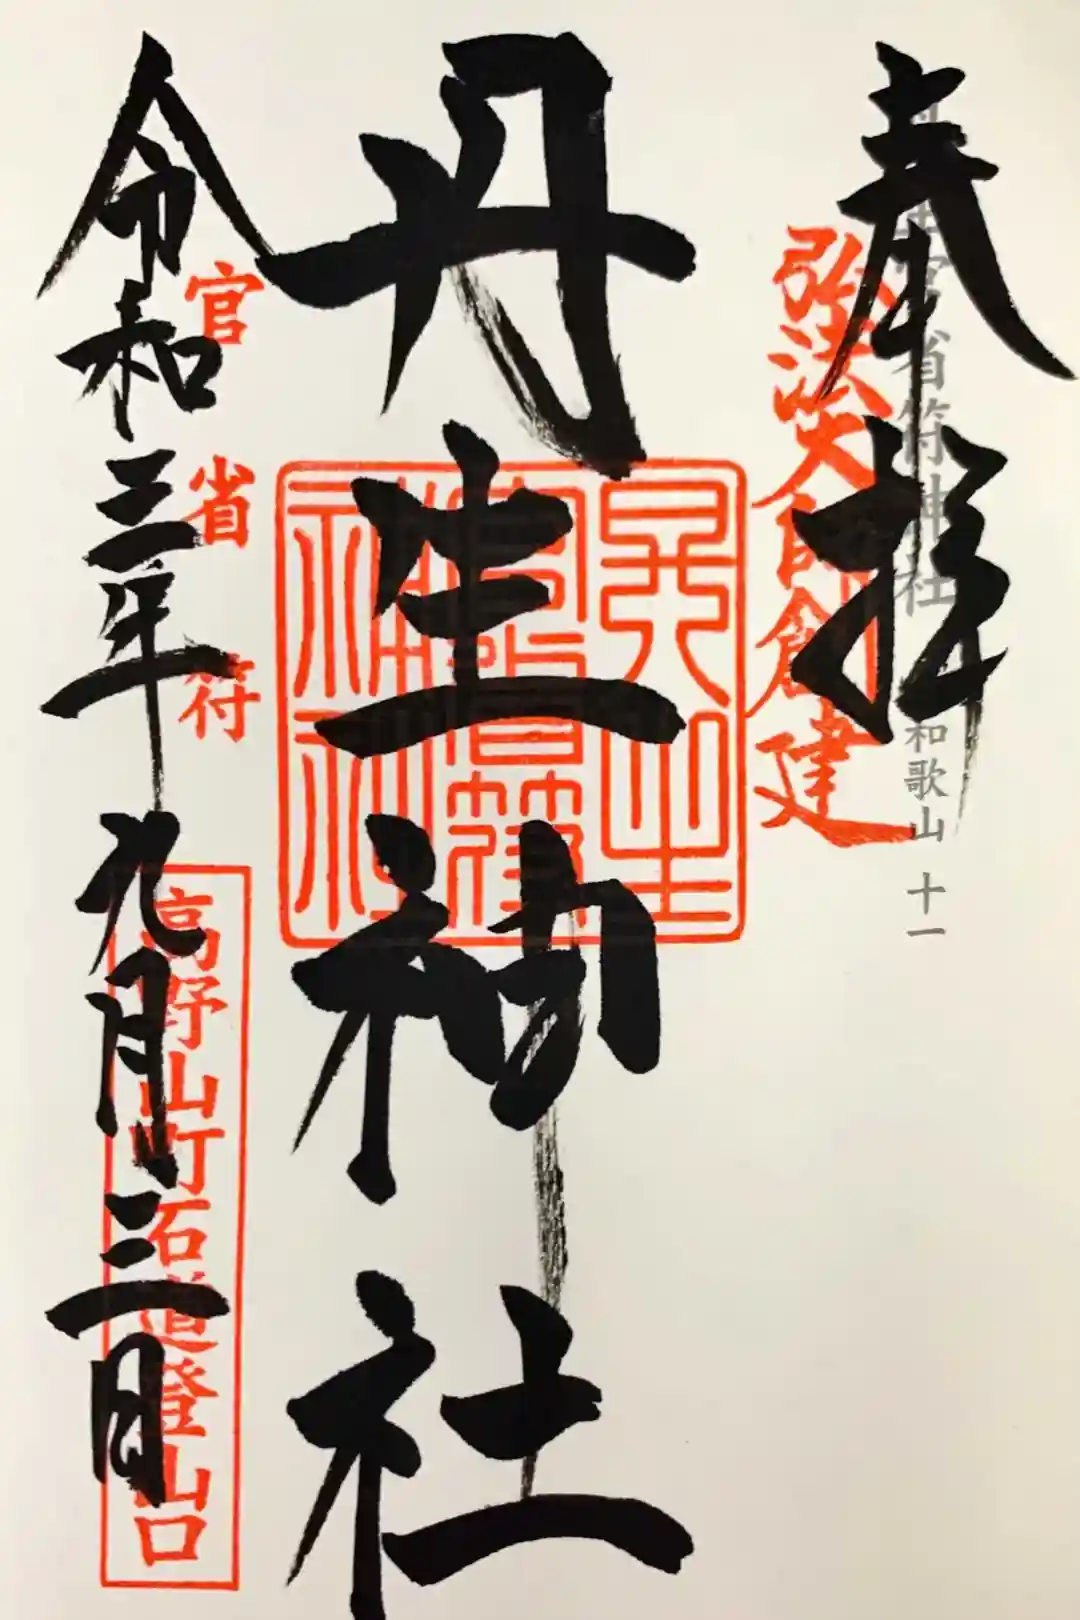 奉拝
省符神社
和歌山 十一
弘法大師創建
丹生神社
丹生官省符神社
官省符
令和三年九月三日
高野山町石道登山口